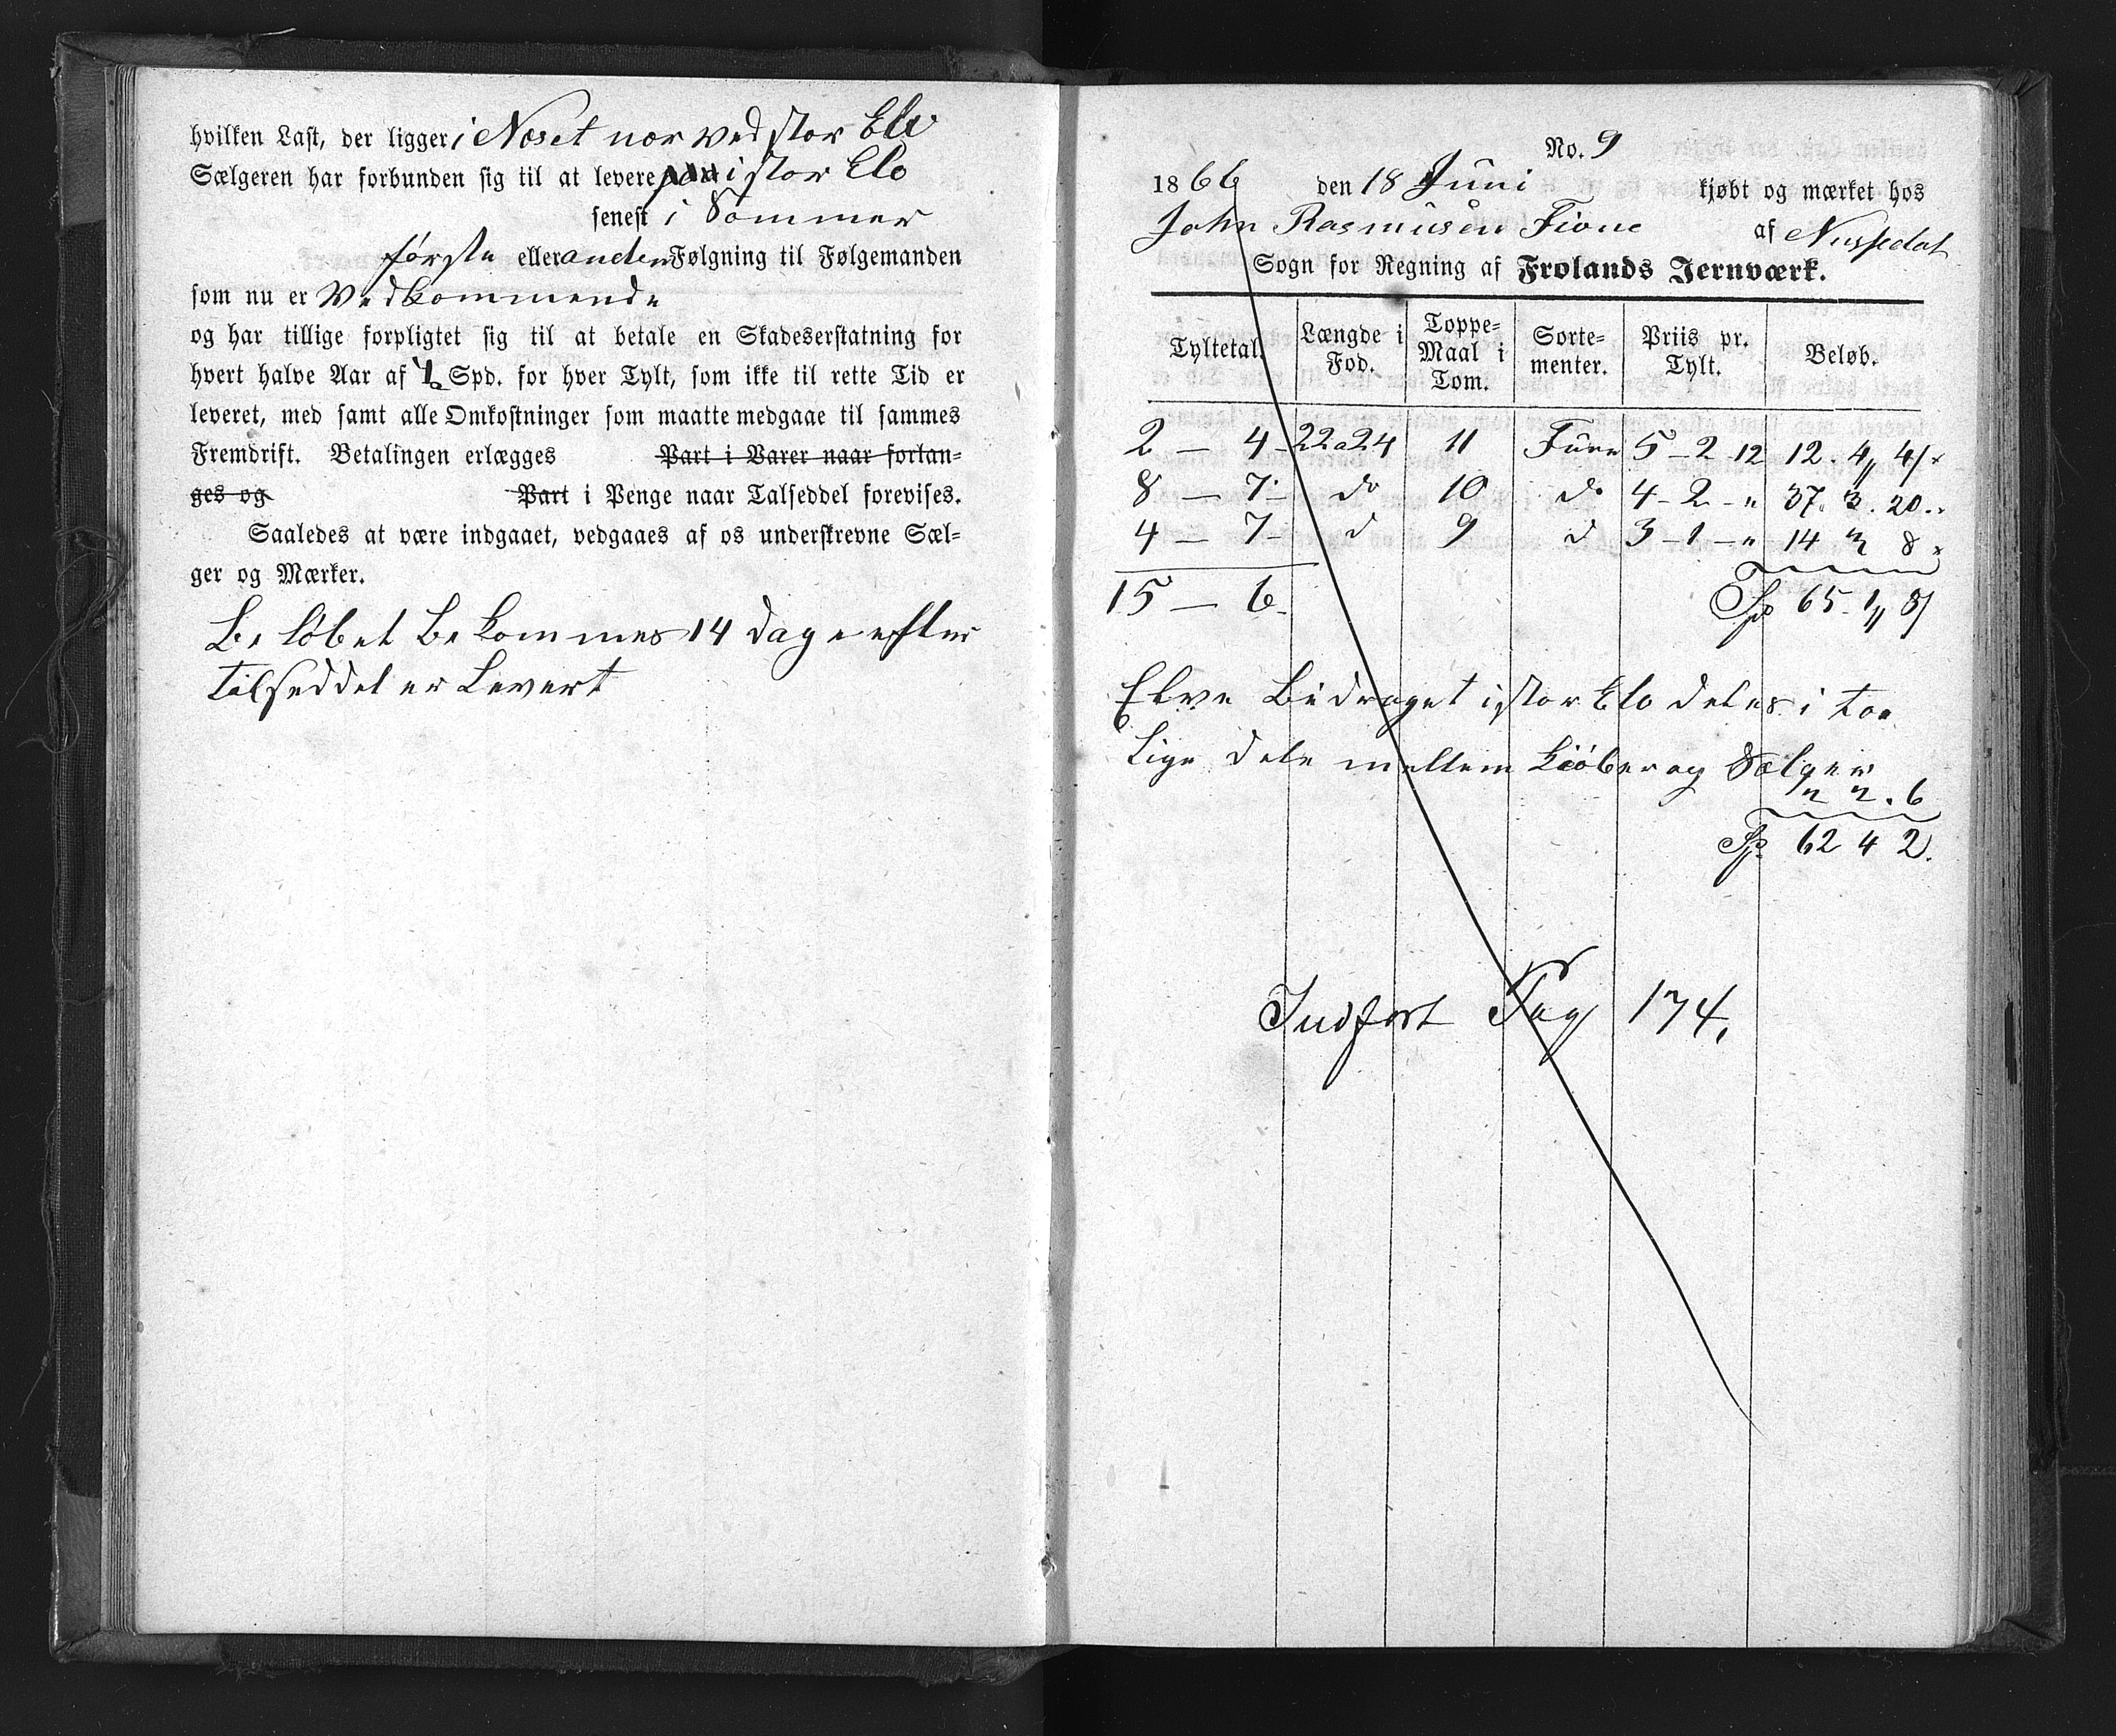 hvilken Last, der ligger i Noset nor ved stor Elv
Sælgeren har forbunden sig til at levere i stor Elv
senest i Sommer
første eller anden Følgning til Følgemanden
som nu er Vedkommende
og har tillige forpligtet sig til at betale en Skadeserstatning for
hvert halve Aar af ½ Spd. for hver Tylt, som ikke til rette Tid er
leveret, med samt alle Omkostninger som maatte medgaae til sammes
Fremdrift. Betalingen erlægges Part i Varer naar forlan-
ges og Part i Penge naar Talseddel forevises.
Saaledes at være indgaaet, vedgaaes af os underskrevne Sæl-
ger og Mærker.
Beløbet Bekommes 14 dage efter
Talseddel er Levert
No. 9
1866 den 18 Juni kjøbt og mærket hos
John Rasmusen Fione af Nussedal
Sogn for Regning af Frolands Jernværk.
Tyltetal. Længde i Fod. Toppe-Maal i Tom. Sorte-menter. Priis pr. Tylt. Beløb.
2 — 4 - 22 a 24 11 Furu 5 - 2 - 12 12 . 4 „ 4
8 — 7 - do 10 do 4 - 2 - „ 37 . 3 . 20
4 — 7 - d 9 d 3 - 1 - „ 14 „ 8
15 — 6 - Sp 65 - 1 „ 8
Elve Bidraget i stor Elv deles i toe
Lige dele mellem Kiøber og Sælger
2 2 . 6
Sp 62 4 2.
Indført Pag 174.